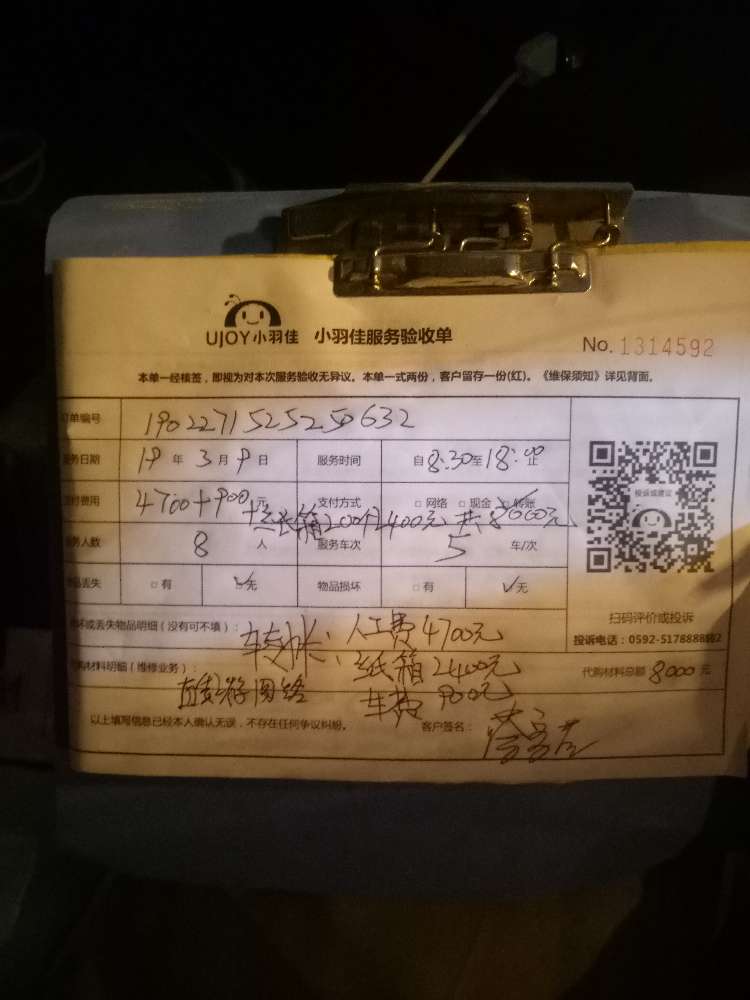 UJOY小羽佳 小羽佳服务验收单
No. 1314592
本单一经核签，即视为对本次服务验收无异议。本单一式两份，客户留存一份(红)。《维保须知》详见背面。
订单编号 1902271525250632
服务日期 19 年 3 月 9 日 服务时间 自 8:30 至 18:00 止
付费用 4700+900 元 支付方式 □ 网络 □ 现金 ☑ 转账
纸箱200个2400元 共8000元
服务人数 8 人 服务车次 5 车/次
物品丢失 □ 有 ☑ 无 物品损坏 □ 有 ☑ 无
投诉或建议
扫码评价或投诉
投诉电话：0592-5178888
坏或丢失物品明细（没有可不填）：
人工费4700元
购材料明细（维修业务）： 纸箱2400元 代购材料总额 8000 元
车费 900元
以上填写信息已经本人确认无误，不存在任何争议纠纷。 客户签名：